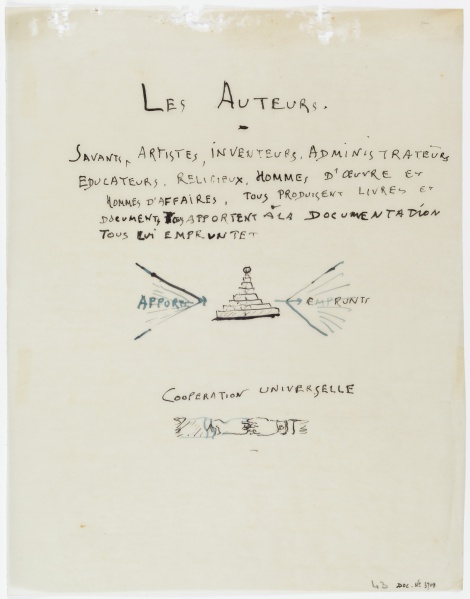 LES AUTEURS.
SAVANTS, ARTISTES, INVENTEURS. ADMINISTRATEURS
EDUCATEURS. RELIGIEUX. HOMMES D'ŒUVRE ET
HOMMES D'AFFAIRES, TOUS PRODUISENT LIVRES ET
DOCUMENTS, APPORTENT À LA DOCUMENTATION
TOUS LUI EMPRUNTET
APPORTS EMPRUNTS
COOPERATION UNIVERSELLE
43 DOC. No